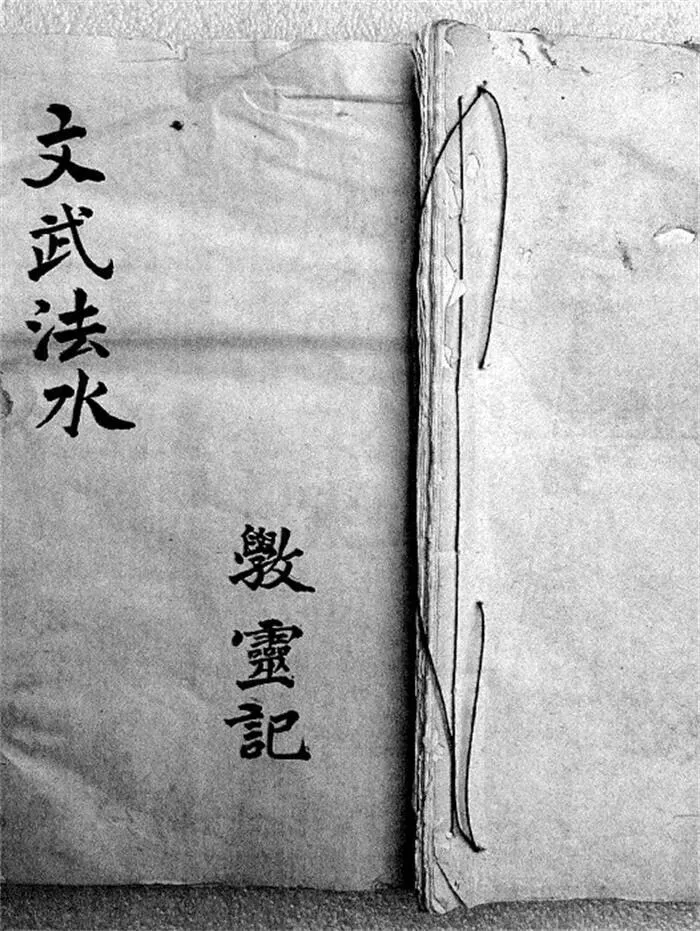 文武法水
斆靈記